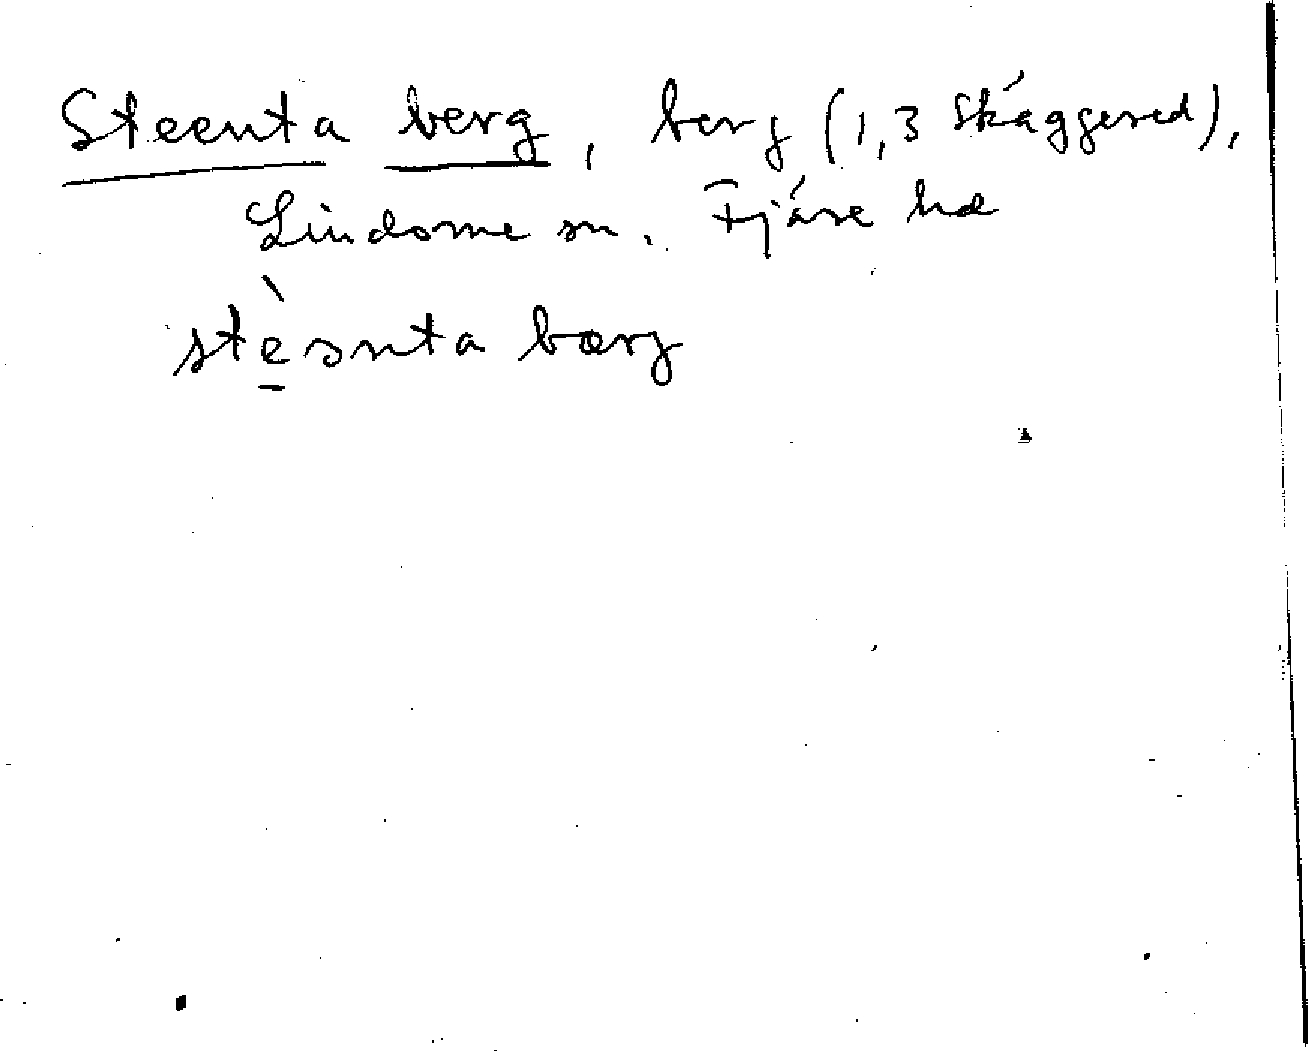 Steenta berg, berg (1,3 Skäggered),
Lindome sn. Fjäre hd
stèenta bærg